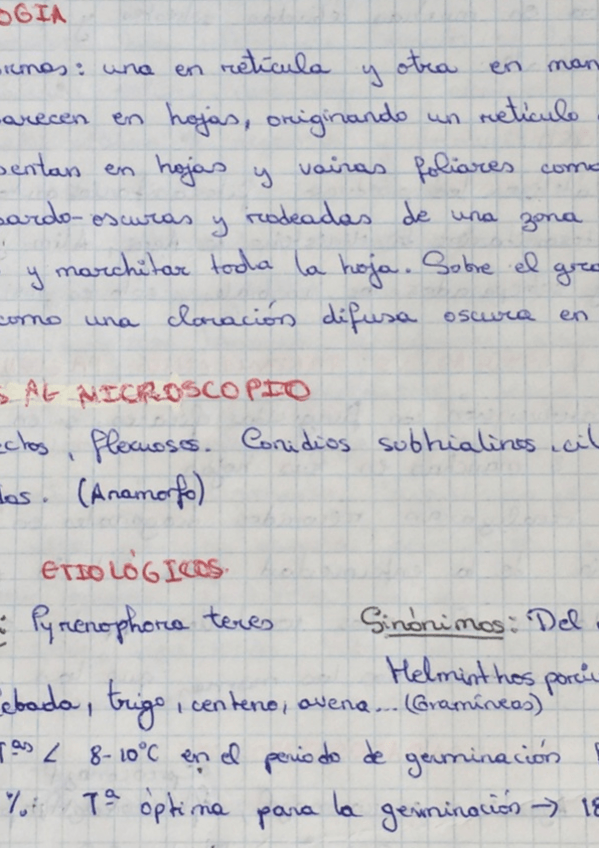 OGIA
rmas: una en retícula y otra en man
arecen en hojas, originando un retículo
sentan en hojas y vainas foliares como
pardo-oscuras y rodeadas de una zona
y marchitar toda la hoja. Sobre el gra
como una cloración difusa oscura en
S AL MICROSCOPIO
ectos, flexuosos. Conidios subhialinos, cil
dos. (Anamorfo)
ETIOLÓGICOS.
: Pyrenophora teres Sinónimos: Del
Helminthos pori
cebada, trigo, centeno, avena... (Gramíneas)
Tªs < 8-10ºC en el periodo de germinación
%. Tª óptima para la germinación → 18